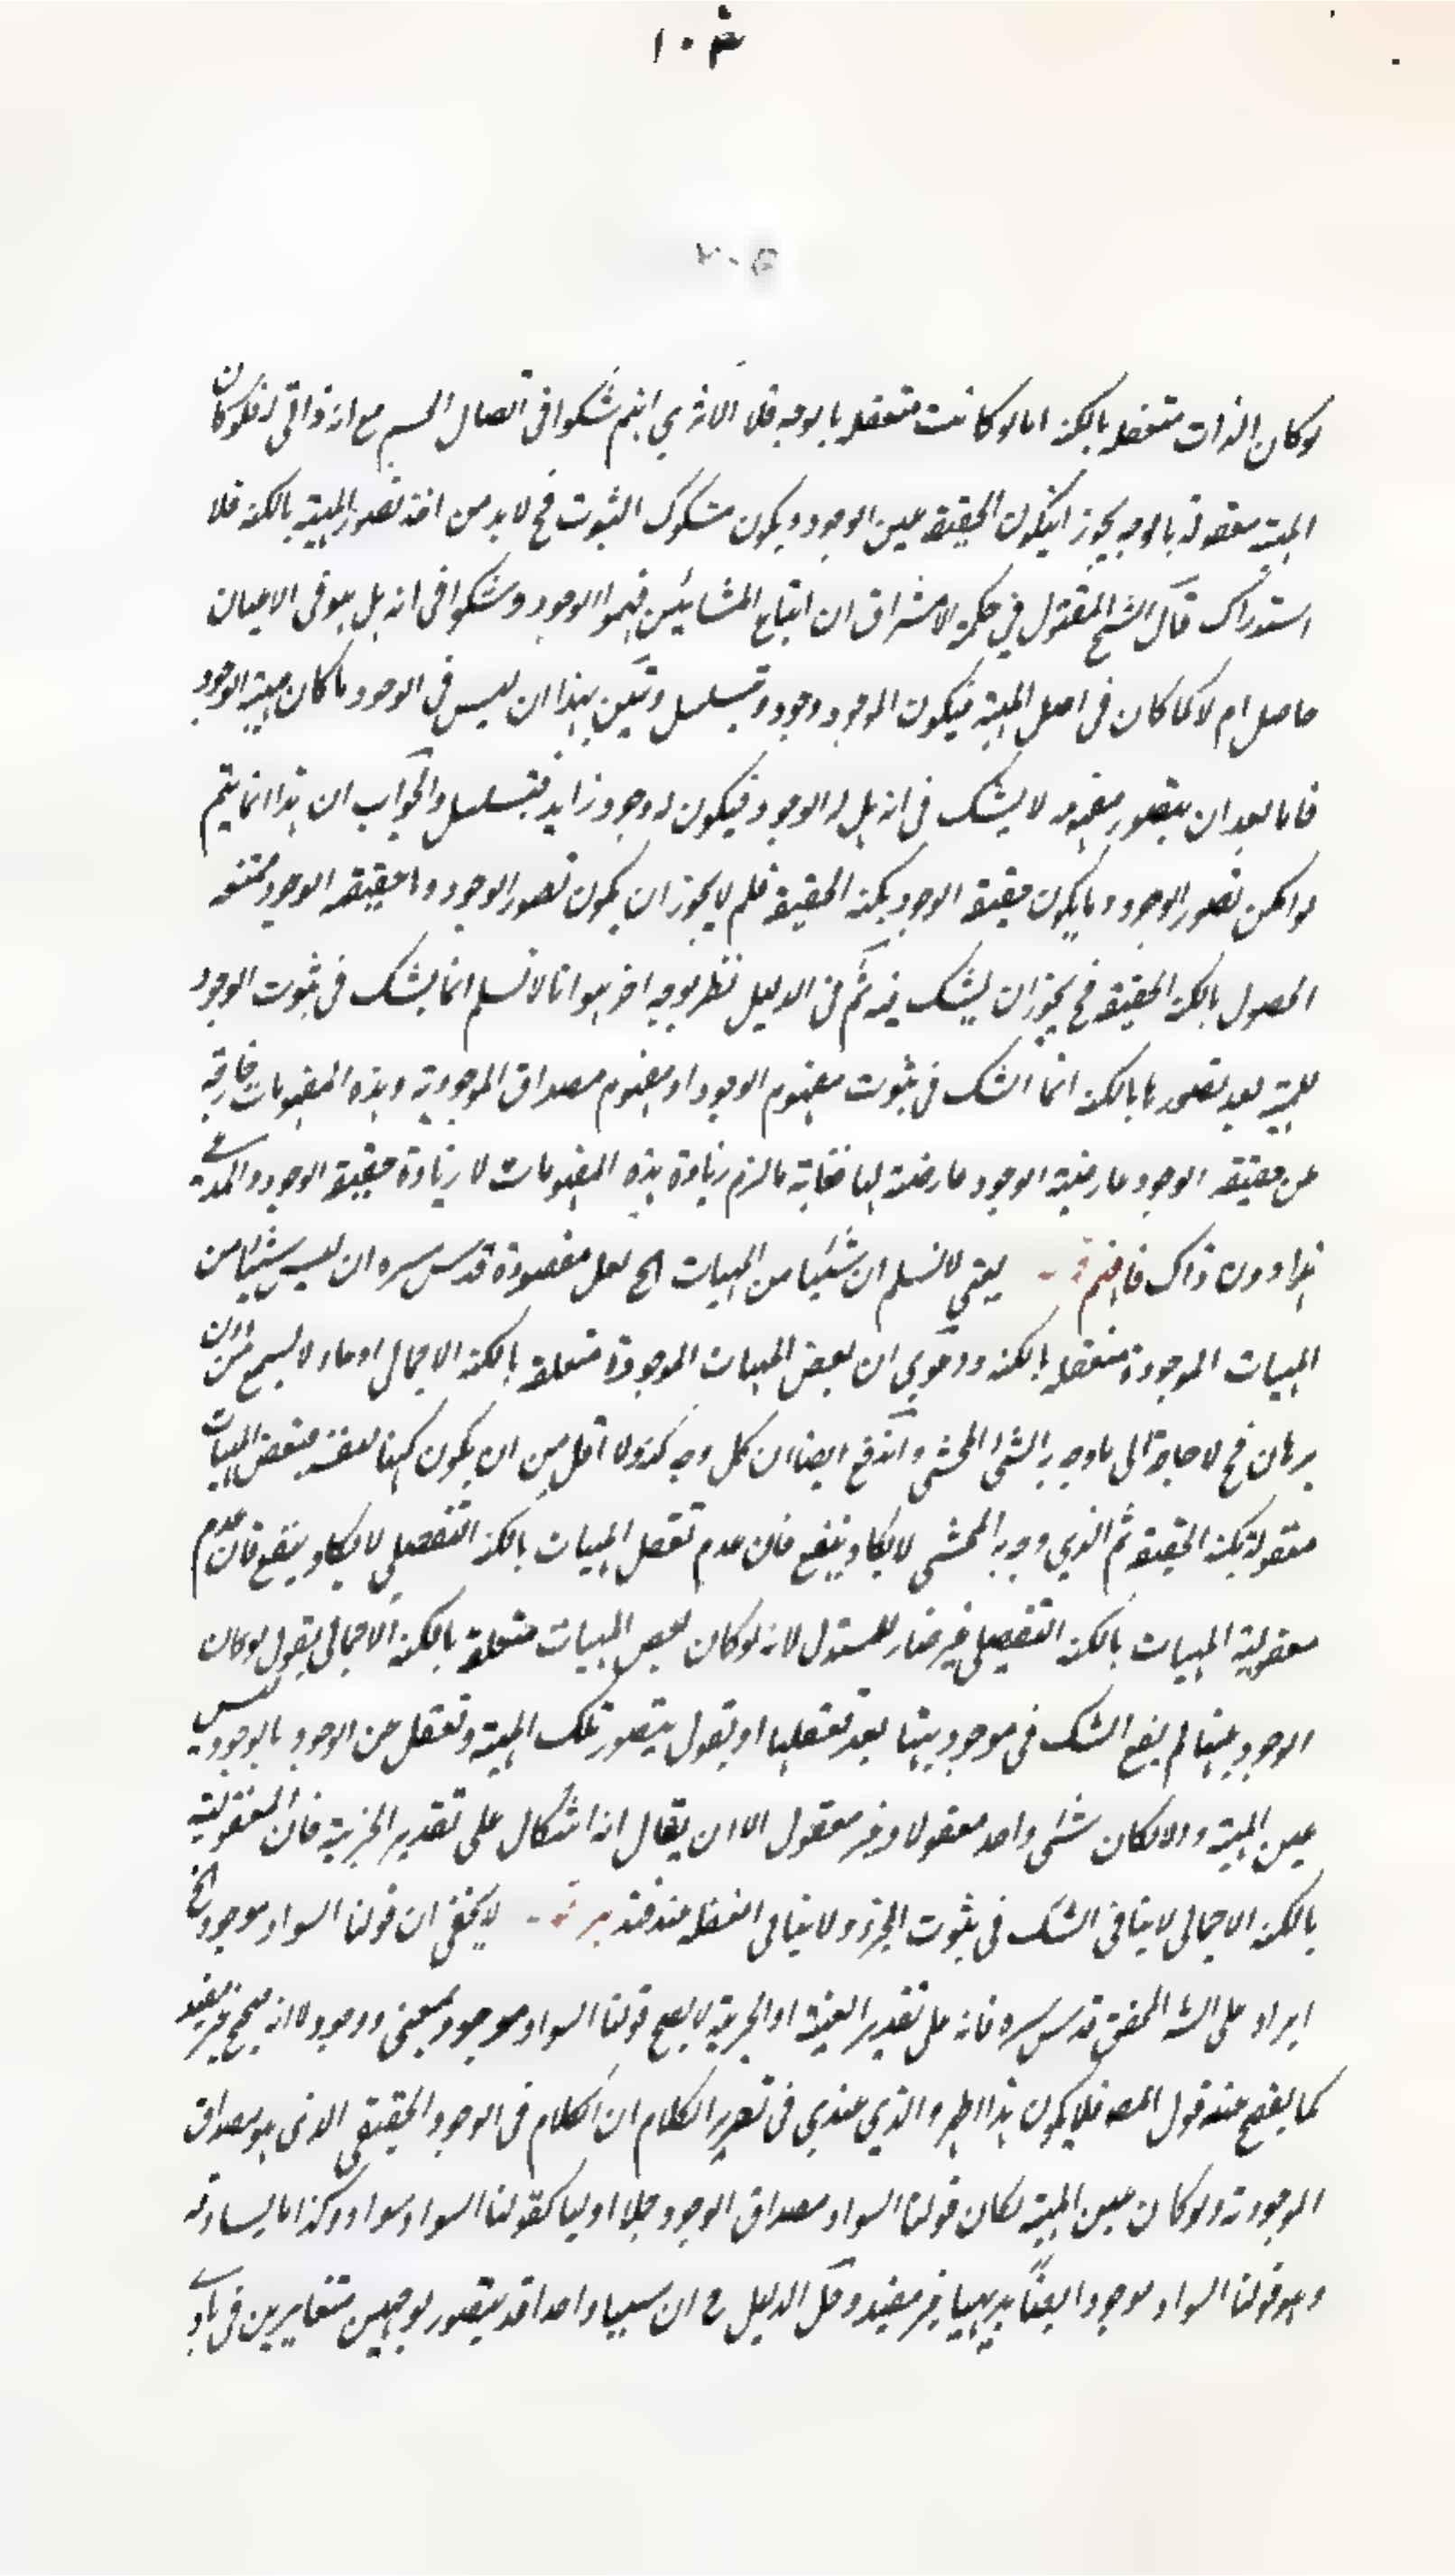 لو كان الذات متعقله بالكنه اما لو كانت متعقله بالوجه فلا الا تري انهم شكوا فى اتصال الجسم مع انه ذاتى له فلو كان
المهية معقولة بالوجه يجوز ان يكون الحقيقة عين الوجود و يكون مشكوك الثبوت فح لا بد من اخذ تصور المهية بالكنه فلا
استدراك قال الشيخ المقتول في حكمة الاشراق ان اتباع المشائين فهموا الوجود و شكوا فى انه هل هو فى الاعيان
حاصل ام لا كما كان فى اصل المهية فيكون للوجود وجود و يتسلسل و تبين بهذا ان ليس فى الوجود ما كان مهية الوجود
فانا بعد ان يتصور مفهومه لا يشك فى انه هل له الوجود فيكون له وجود زايد فيتسلسل والجواب ان هذا انما يتم
لو امكن تصور الوجود و ما يكون حقيقة الوجود بكنه الحقيقة فلم لا يجوز ان يكون تصور الوجود و اما حقيقة الوجود ممتنعه
الحصول بالكنه الحقيقة فح يجوز ان يشك فيه ثم فى الدليل نظر بوجه اخر هو انا لا نسلم انما يشك فى ثبوت الوجود
للمهية بعد تصورها بالكنه انما الشك فى ثبوت مفهوم الوجود او مفهوم مصداق الموجودية و هذه المفهومات خارجة
عن حقيقة الوجود عارضية الوجود عارضة لها فغاية ما لزم زيادة هذه المفهومات لا زيادة حقيقة الوجود والمدعى
هذا دون ذاك فافهم قوله يعني لا نسلم ان شيئا من المهيات الخ لعل مقصوده قدس سره ان ليس شيئا من
المهيات الموجودة متعقله بالكنه و دعوي ان بعض المهيات الموجودة متعلقة بالكنه الاجمالى ادعاء لا يسمع من دون
برهان فح لا حاجة الى ما وجه به الشى المحشى و اندفع ايضا ان كل وجه كنه و لا اقل من ان يكون كنها لنفسه فبعض المهيات
معقولة بكنه الحقيقة ثم الذي وجه به المحشى لا يكاد ينفع فان عدم تعقل المهيات بالكنه التفصيلي لا يكاد ينفع فان عدم
معقولية المهيات بالكنه التفصيلى غير ضار للمستدل لانه لو كان بعض المهيات متعلقة بالكنه الاجمالى يقول لو كان
الوجود عينها لم يقع الشك فى موجوديتها بعد تعقلها او يقول يتصور تلك المهية و تعقل عن الوجود بالوجود ليس
عين المهية و الا لكان شئ واحد معقولا و غير معقول الا ان يقال انه اشكال على تقدير الجزية فان المعقولية
بالكنه الاجمالى لا ينافى الشك فى ثبوت الجزء و لا ينافى الغفلة عنه فتدبر قوله لا يخفى ان قولنا السواد موجود الخ
ايراد على الشه المحقق قدس سره فانه على تقدير العينية او الجزية لا يصح قولنا السواد موجود بمعنى ذو وجود لا انه صحيح غير مفيد
كما يفصح عنه قول المصه فلا يكون هذا اظهر و الذي عندي فى تحرير الكلام ان الكلام فى الوجود الحقيقى الذى هو مصداق
الموجودية و لو كان عين المهية لكان قولنا السواد مصداق الوجود حملا اوليا كقولنا السواد سواد و كذا ما يساوقه
و هو قولنا السواد موجود ايضاً بديهيا غير مفيد و حل الدليل ان شيئا واحدا قد يتصور بوجهين متغايرين فى بادى